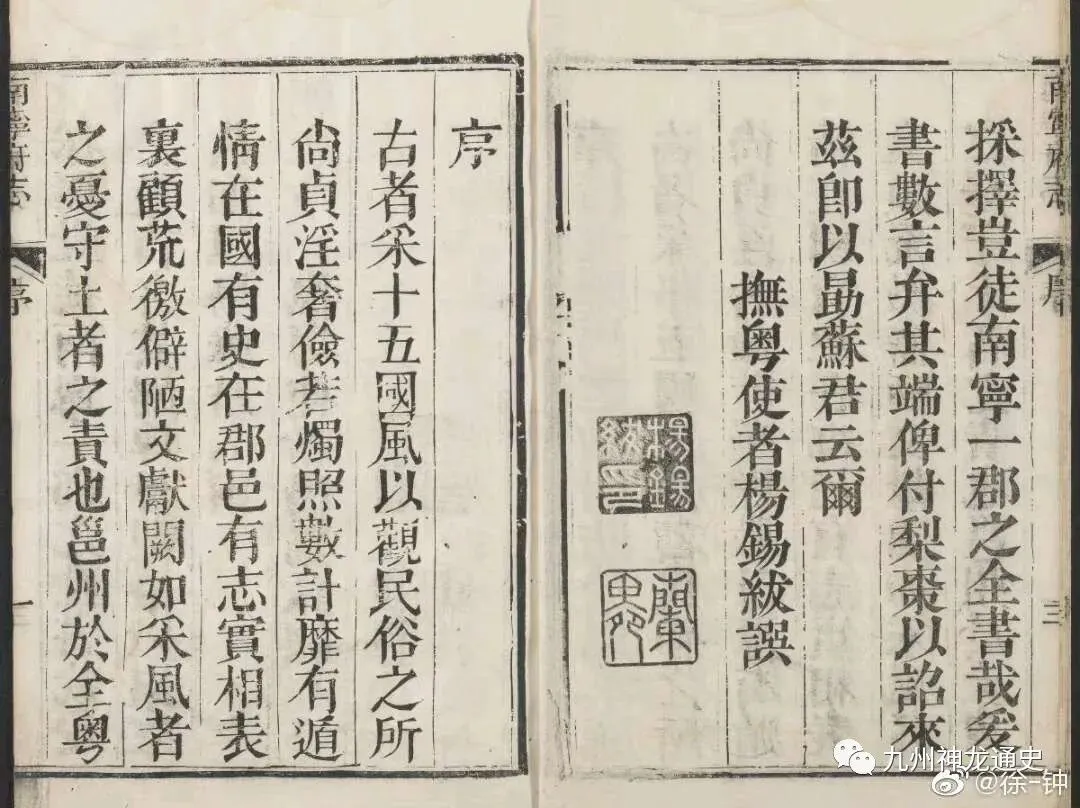 採擇豈徒南寧一郡之全書哉爰
書數言弁其端俾付梨棗以詔來
茲卽以勖蘇君云爾
撫粤使者楊錫紱譔
楊錫紱印
序
古者采十五國風以觀民俗之所
尙貞淫奢儉若燭照數計靡有遁
情在國有史在郡邑有志實相表
裏顧荒徼僻陋文獻闕如采風者
之憂守土者之責也邕州於全粤
南寧府志
序
一
九州神龙通史
@徐-钟